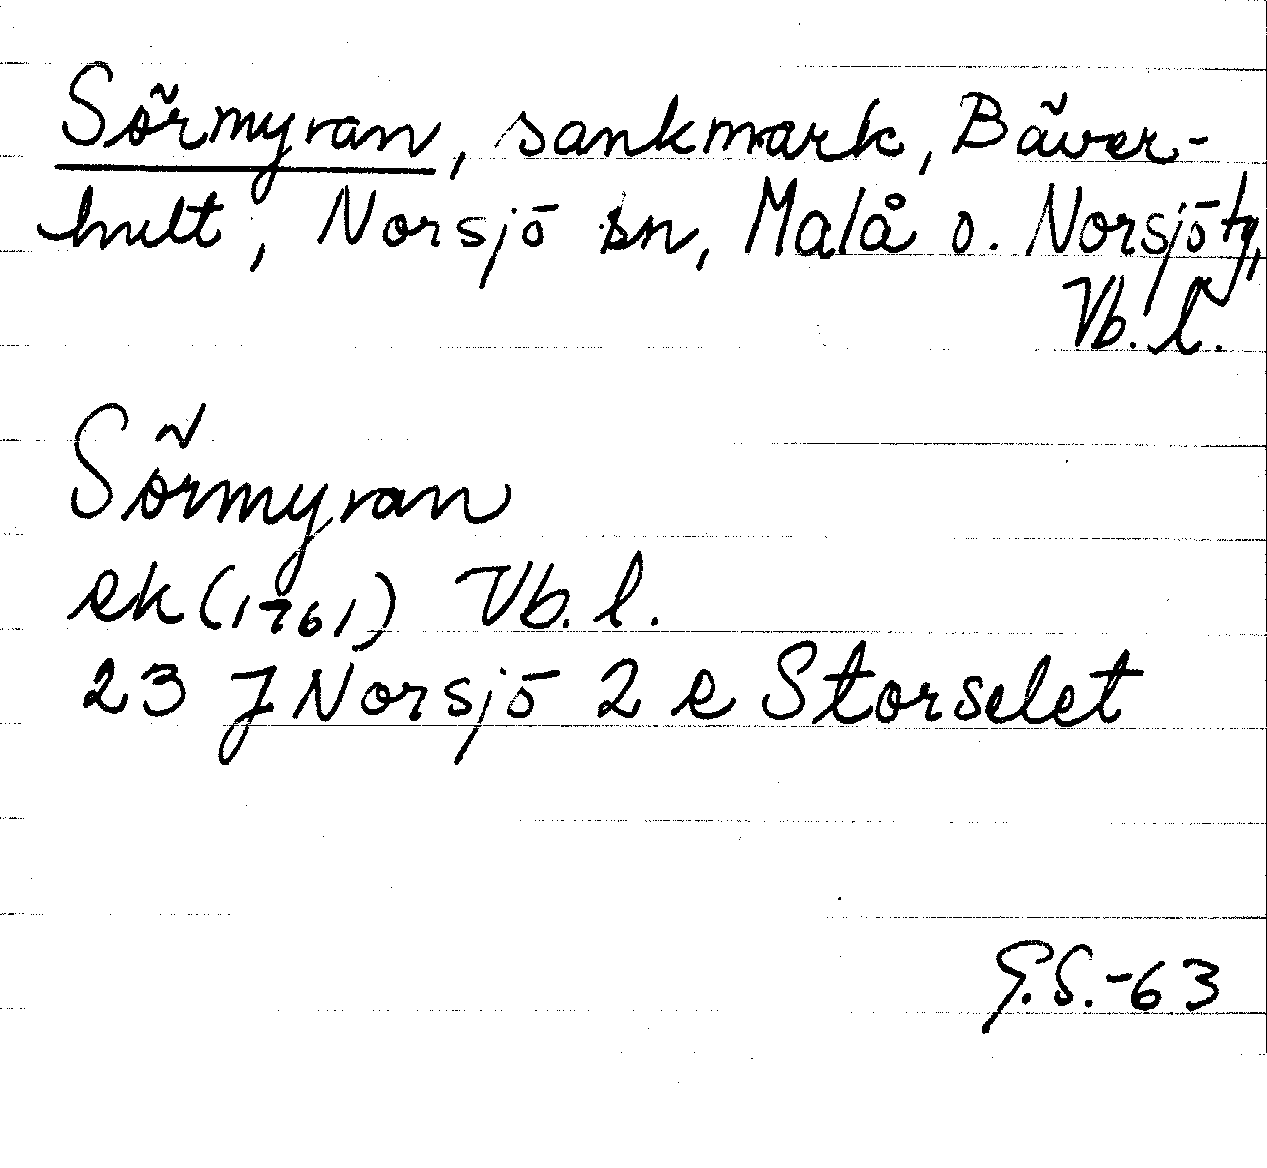 Sörmyran, sankmark, Bäver-
hult, Norsjö sn, Malå o. Norsjö tg,
Vb. l.
Sörmyran
ek (1961) Vb. l.
23 J Norsjö 2 e Storselet
G.S.-63